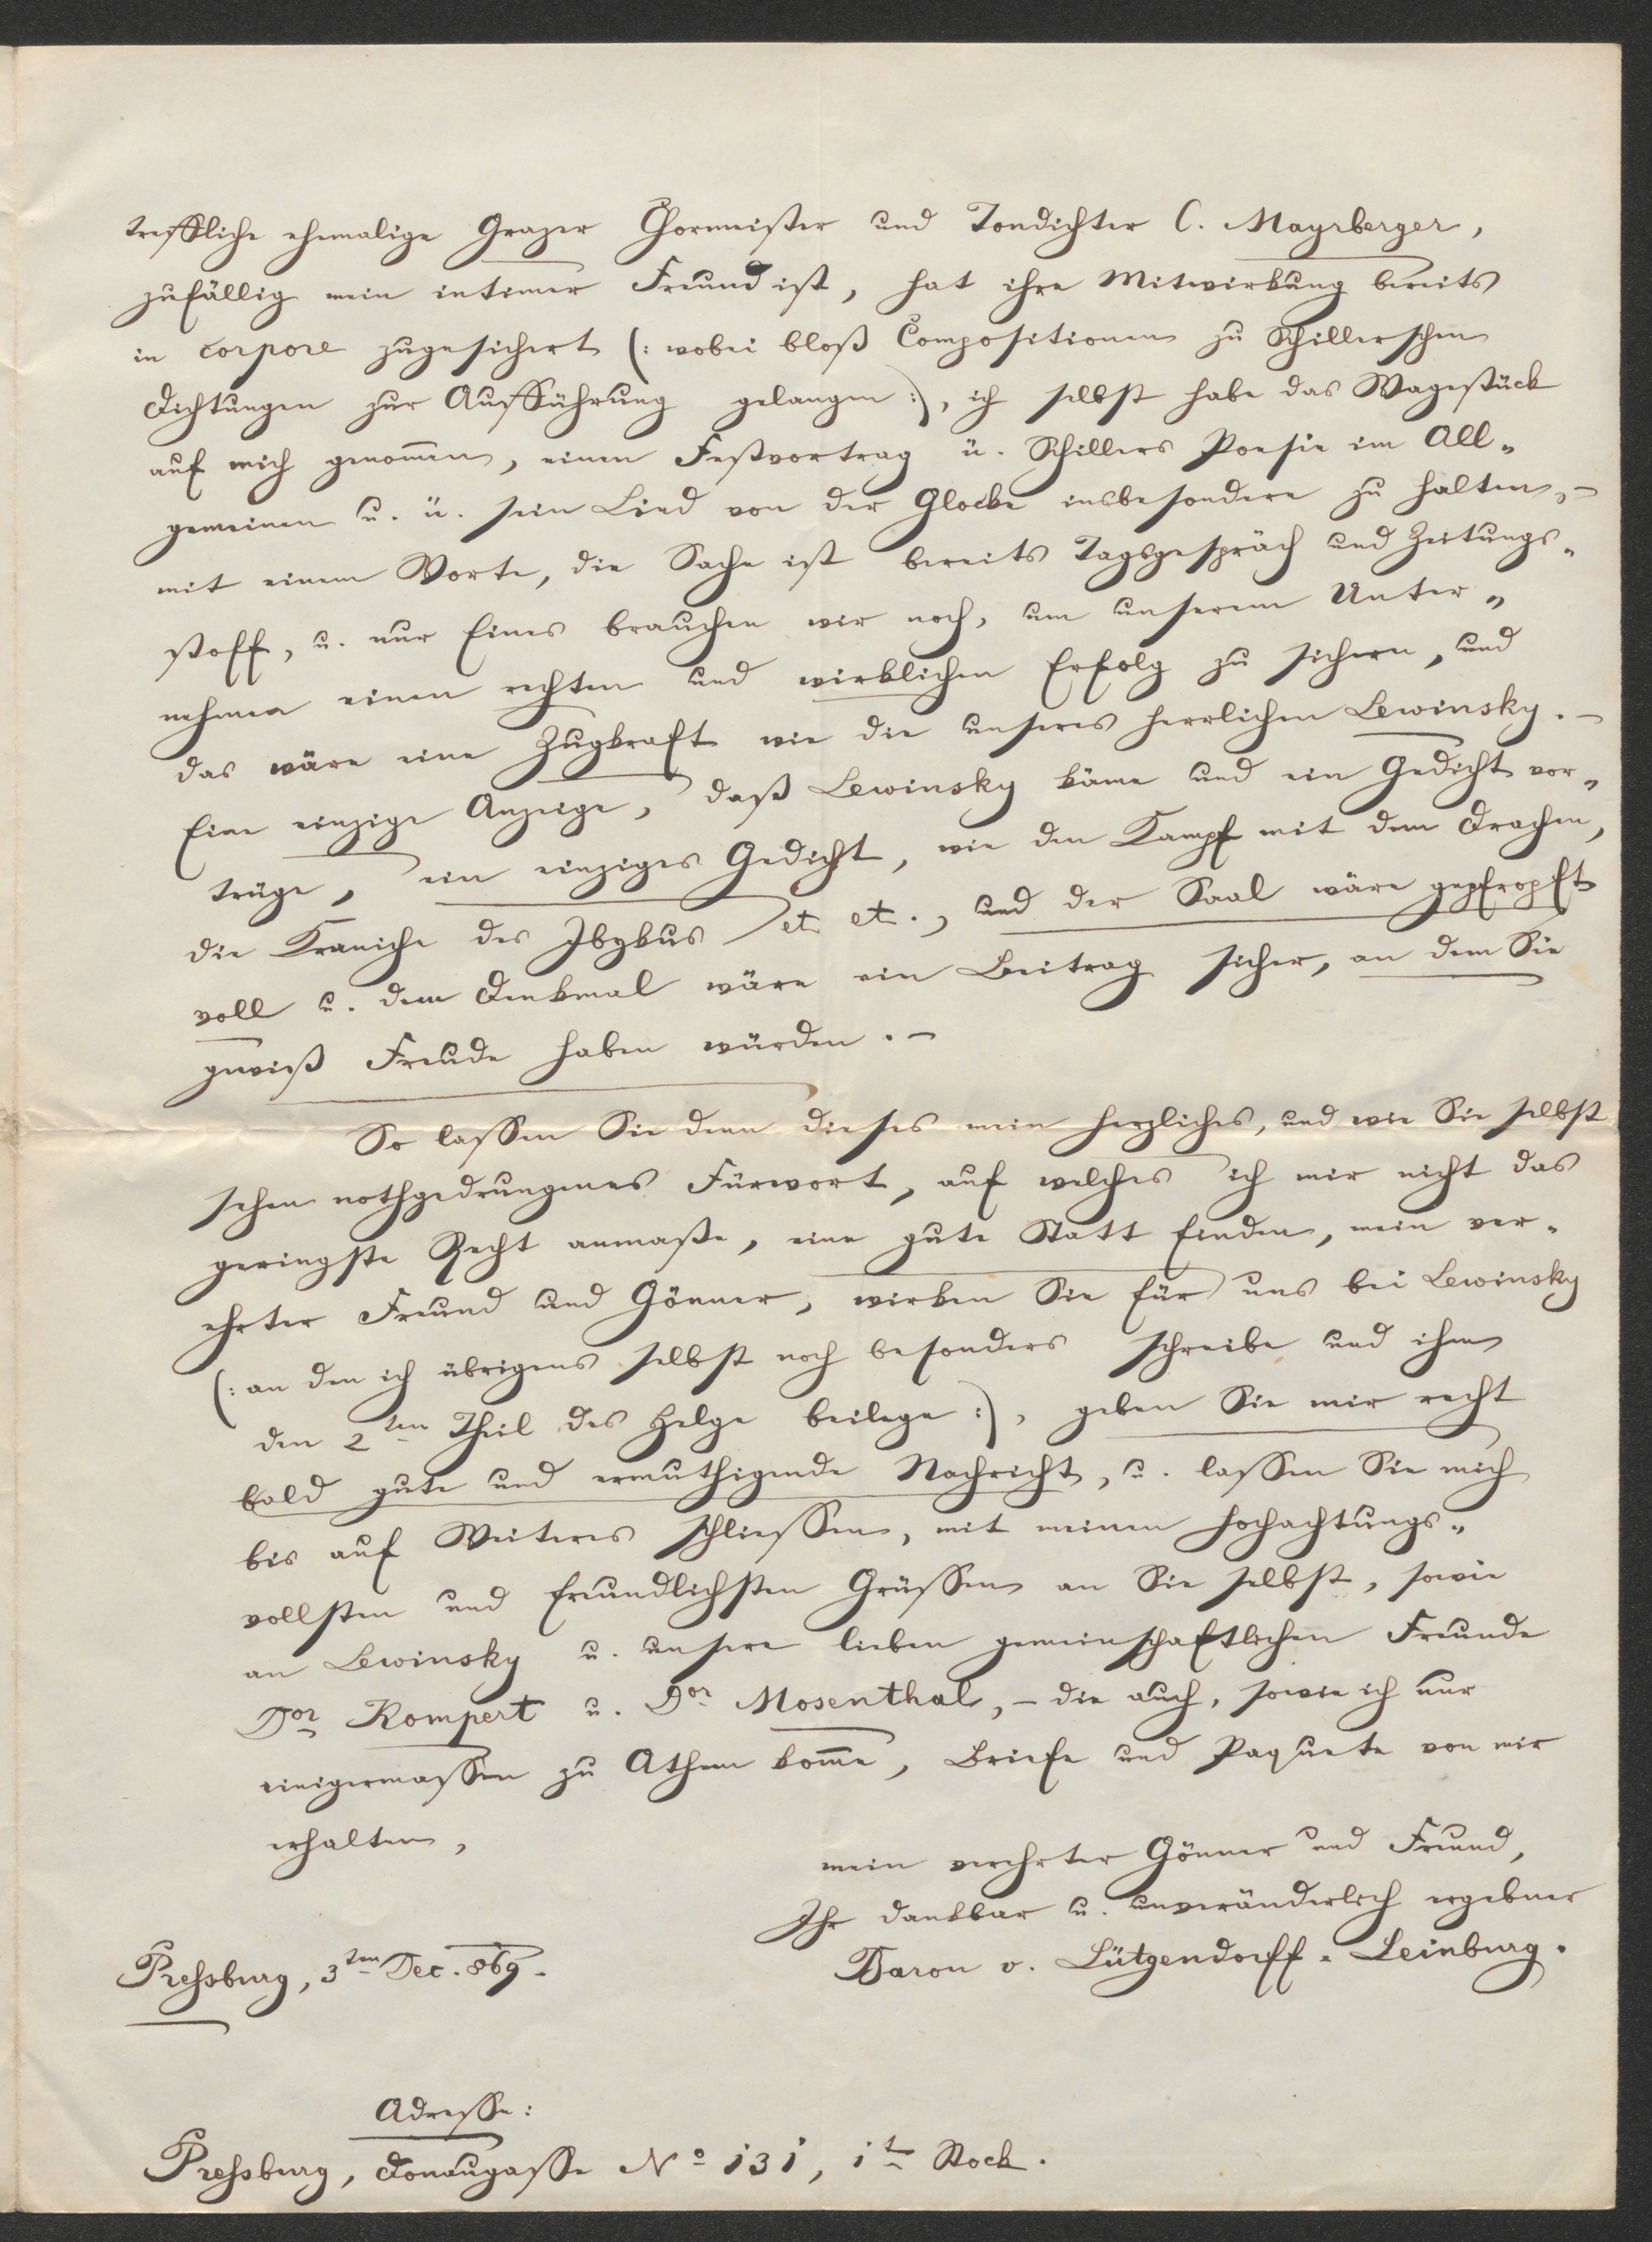 treffliche ehemalige Grazer Chormeister und Tondichter C. Mayrberger,
zufällig mein intimer Freund ist, hat ihre Mitwirkung bereits
in corpore zugesichert (: wobei bloß Compositionen zu Schillerschen
Dichtungen zur Aufführung gelangen :), ich selbst habe das Wagestück
auf mich genom̄en, einen Festvortrag ü. Schillers Poesie im All„
gemeinen u. ü. sein Lied von der Glocke insbesondere zu halten, –
mit einem Worte, die Sache ist bereits Tagsgespräch und Zeitungs„
stoff, u. nur Eines brauchen wir noch, um unserem Unter„
nehmen einen rechten und wirklichen Erfolg zu sichern, und
das wäre eine Zugkraft wie die unseres herrlichen Lewinsky. –
Eine einzige Anzeige, daß Lewinsky käme und ein Gedicht vor„
trüge, ein einziges Gedicht, wie den Kampf mit dem Drachen,
die Kraniche des Ibykus et et., und der Saal wäre gepfropft
voll u. dem Denkmal wäre ein Beitrag sicher, an dem Sie
gewiß Freude haben würden. –
So lassen Sie denn dieses mein herzliches, und wie Sie selbst
sehen nothgedrungenes Fürwort, auf welches ich mir nicht das
geringste Recht anmaße, eine gute Statt finden, mein ver„
ehrter Freund und Gönner, wirken Sie für uns bei Lewinsky
(: an den ich übrigens selbst noch besonders schreibe und ihm
den 2ten Theil des Helge beilege :), geben Sie mir recht
bald gute und ermuthigende Nachricht, u. lassen Sie mich
bis auf Weiteres schliessen, mit meinen hochachtungs„
vollsten und freundlichsten Grüssen an Sie selbst, sowie
an Lewinsky u. unsere lieben gemeinschaftlichen Freunde
Dor Kompert u. Dor Mosenthal, – die auch, sowie ich nur
einigermassen zu Athem kom̄e, Briefe und Paquete von mir
erhalten,
mein verehrter Gönner und Freund,
Ihr dankbar u. unveränderlich ergebner
Baron v. Lützendorff-Leinburg.
Pressburg, 3ten Dec. 869.
Adresse:
Pressburg, Donaugasse No 131, 1t Stock.